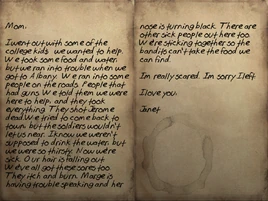 Mom,
I went out with some of the
college kids we wanted to help.
We took some food and water
but we ran into trouble when we
got to Albany. We ran into some
people on the roads. People that
had guns. We told them we were
here to help, and they took
everything. They shot Jerome
dead. We tried to come back to
town, but the soldiers wouldn't
let us near. I know we weren't
supposed to drink the water, but
we were so thirsty. Now we're
sick. Our hair is falling out.
We've all got these sores too.
They itch and burn. Marge is
having trouble speaking and her
nose is turning black. There are
other sick people out here too.
We're sticking together so the
bandits can't take the food we
can find.
Im really scared. Im sorry I left.
I love you.
Janet